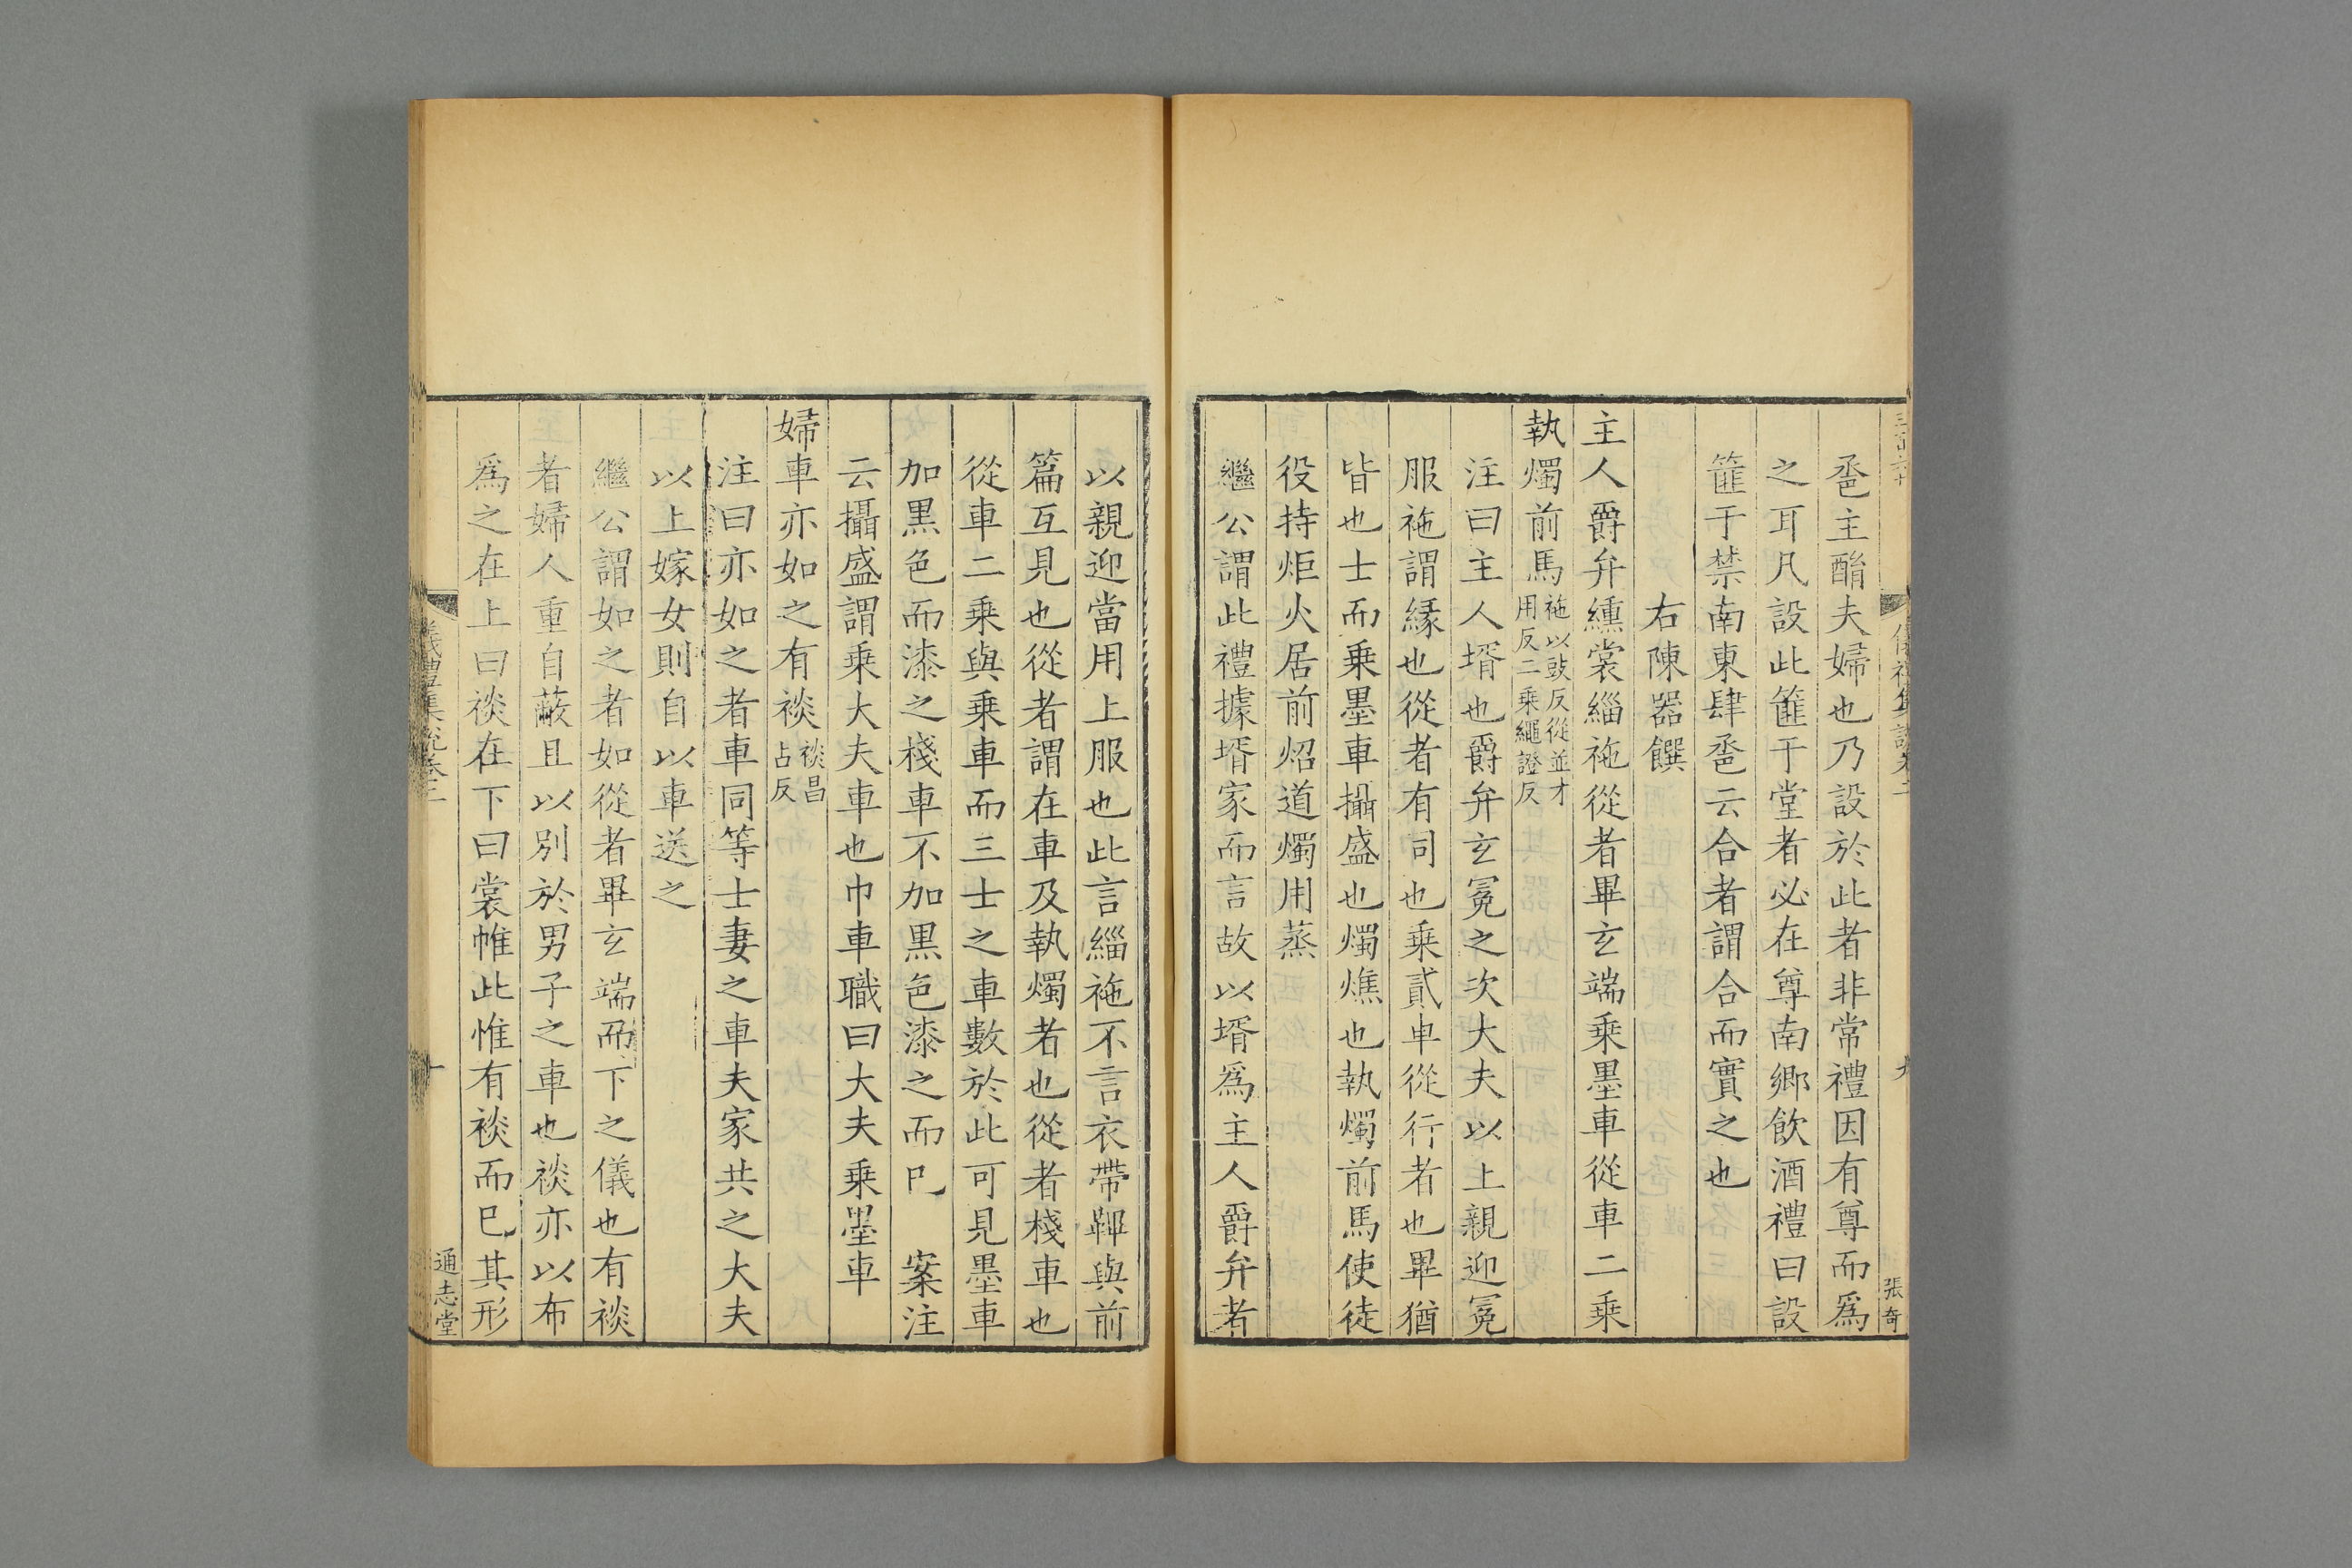 巹主酳夫婦也乃設於此者非常禮因有尊而爲
之耳凡設此篚于堂者必在尊南鄉飲酒禮曰設
篚于禁南東肆巹云合者謂合而實之也
右陳器饌
主人爵弁纁裳緇袘從者畢玄端乗墨車從車二乗
執燭前馬袘以豉反從並才用反二乗繩證反
注曰主人壻也爵弁玄冕之次大夫以上親迎冕
服袘謂緣也從者有司也乗貳車從行者也畢猶
皆也士而乗墨車攝盛也燭燋也執燭前馬使徒
役持炬火居前炤道燭用蒸
繼公謂此禮據壻家而言故以壻爲主人爵弁者
以親迎當用上服也此言緇袘不言衣帶韠與前
篇互見也從者謂在車及執燭者也從者棧車也
從車二乗與乗車而三士之車數於此可見墨車
加黒色而漆之棧車不加黒色漆之而已　案注
云攝盛謂乗大夫車也巾車職曰大夫乗墨車
婦車亦如之有裧裧昌占反
注曰亦如之者車同等士妻之車夫家共之大夫
以上嫁女則自以車送之
繼公謂如之者如從者畢玄端而下之儀也有裧
者婦人重自蔽且以別於男子之車也裧亦以布
爲之在上曰裧在下曰裳帷此惟有裧而已其形
儀禮集說卷二
十
通志堂
張奇